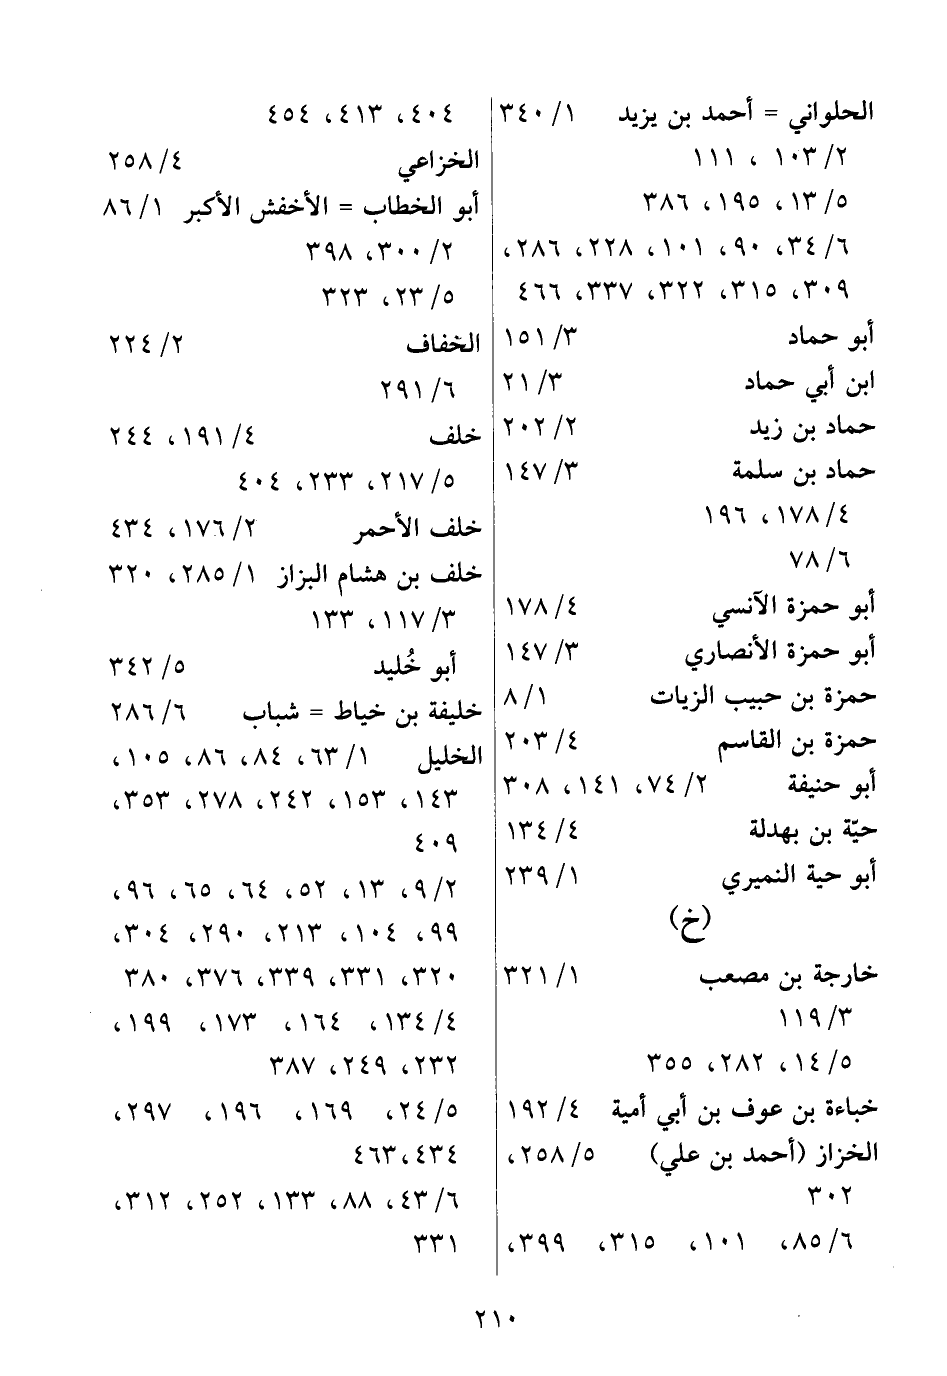 الحلواني = أحمد بن يزيد ١/ ٣٤٠
٢/ ١٠٣ ، ١١١
٥/ ١٣، ١٩٥، ٣٨٦
٦/ ٣٤، ٩٠، ١٠١، ٢٢٨، ٢٨٦،
٣٠٩، ٣١٥، ٣٢٢، ٣٣٧، ٤٦٦
أبو حماد ٣/ ١٥١
ابن أبي حماد ٣/ ٢١
حماد بن زيد ٢/ ٢٠٢
حماد بن سلمة ٣/ ١٤٧
٤/ ١٧٨، ١٩٦
٦/ ٧٨
أبو حمزة الآنسي ٤/ ١٧٨
أبو حمزة الأنصاري ٣/ ١٤٧
حمزة بن حبيب الزيات ١/ ٨
حمزة بن القاسم ٤/ ٢٠٣
أبو حنيفة ٢/ ٧٤، ١٤١، ٣٠٨
حيّة بن بهدلة ٤/ ١٣٤
أبو حية النميري ١/ ٢٣٩
(خ)
خارجة بن مصعب ١/ ٣٢١
٣/ ١١٩
٥/ ١٤، ٢٨٢، ٣٥٥
خباءة بن عوف بن أبي أمية ٤/ ١٩٢
الخزاز (أحمد بن علي) ٥/ ٢٥٨،
٣٠٢
٦/ ٨٥، ١٠١، ٣١٥، ٣٩٩،
٤٠٤، ٤١٣، ٤٥٤
الخزاعي ٤/ ٢٥٨
أبو الخطاب = الأخفش الأكبر ١/ ٨٦
٢/ ٣٠٠، ٣٩٨
٥/ ٢٣، ٣٢٣
الخفاف ٢/ ٢٢٤
٦/ ٢٩١
خلف ٤/ ١٩١، ٢٤٤
٥/ ٢١٧، ٢٣٣، ٤٠٤
خلف الأحمر ٢/ ١٧٦، ٤٣٤
خلف بن هشام البزاز ١/ ٢٨٥، ٣٢٠
٣/ ١١٧، ١٣٣
أبو خُليد ٥/ ٣٤٢
خليفة بن خياط = شباب ٦/ ٢٨٦
الخليل ١/ ٦٣، ٨٤، ٨٦، ١٠٥،
١٤٣، ١٥٣، ٢٤٢، ٢٧٨، ٣٥٣،
٤٠٩
٢/ ٩، ١٣، ٥٢، ٦٤، ٦٥، ٩٦،
٩٩، ١٠٤، ٢١٣، ٢٩٠، ٣٠٤،
٣٢٠، ٣٣١، ٣٣٩، ٣٧٦، ٣٨٠
٤/ ١٣٤، ١٦٤، ١٧٣، ١٩٩،
٢٣٢، ٢٤٩، ٣٨٧
٥/ ٢٤، ١٦٩، ١٩٦، ٢٩٧،
٤٣٤، ٤٦٣
٦/ ٤٣، ٨٨، ١٣٣، ٢٥٢، ٣١٢،
٣٣١
٢١٠